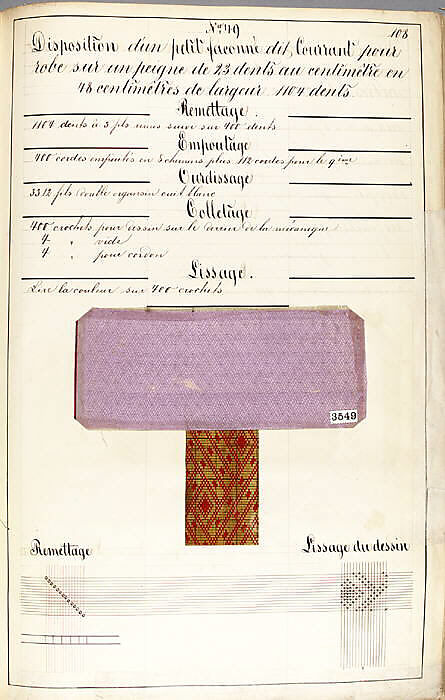 N° 49
108
Disposition d'un petit façonné dit, Courrant pour
robe sur un peigne de 23 dents au centimètre en
48 centimètres de largeur 1104 dents.
Remettage.
1104 dents à 3 fils unis suivi sur 400 dents
Empoutage
400 cordes empoutés en 8 chemins plus 112 cordes pour le 9ème
Ourdissage
3312 fils double organsin cuit blanc
Colletage
400 crochets pour dessin sur le derrière de la mécanique
4 " vide
4 " pour cordon
Lissage.
Lire la couleur sur 400 crochets
3549
Remettage
Lissage du dessin